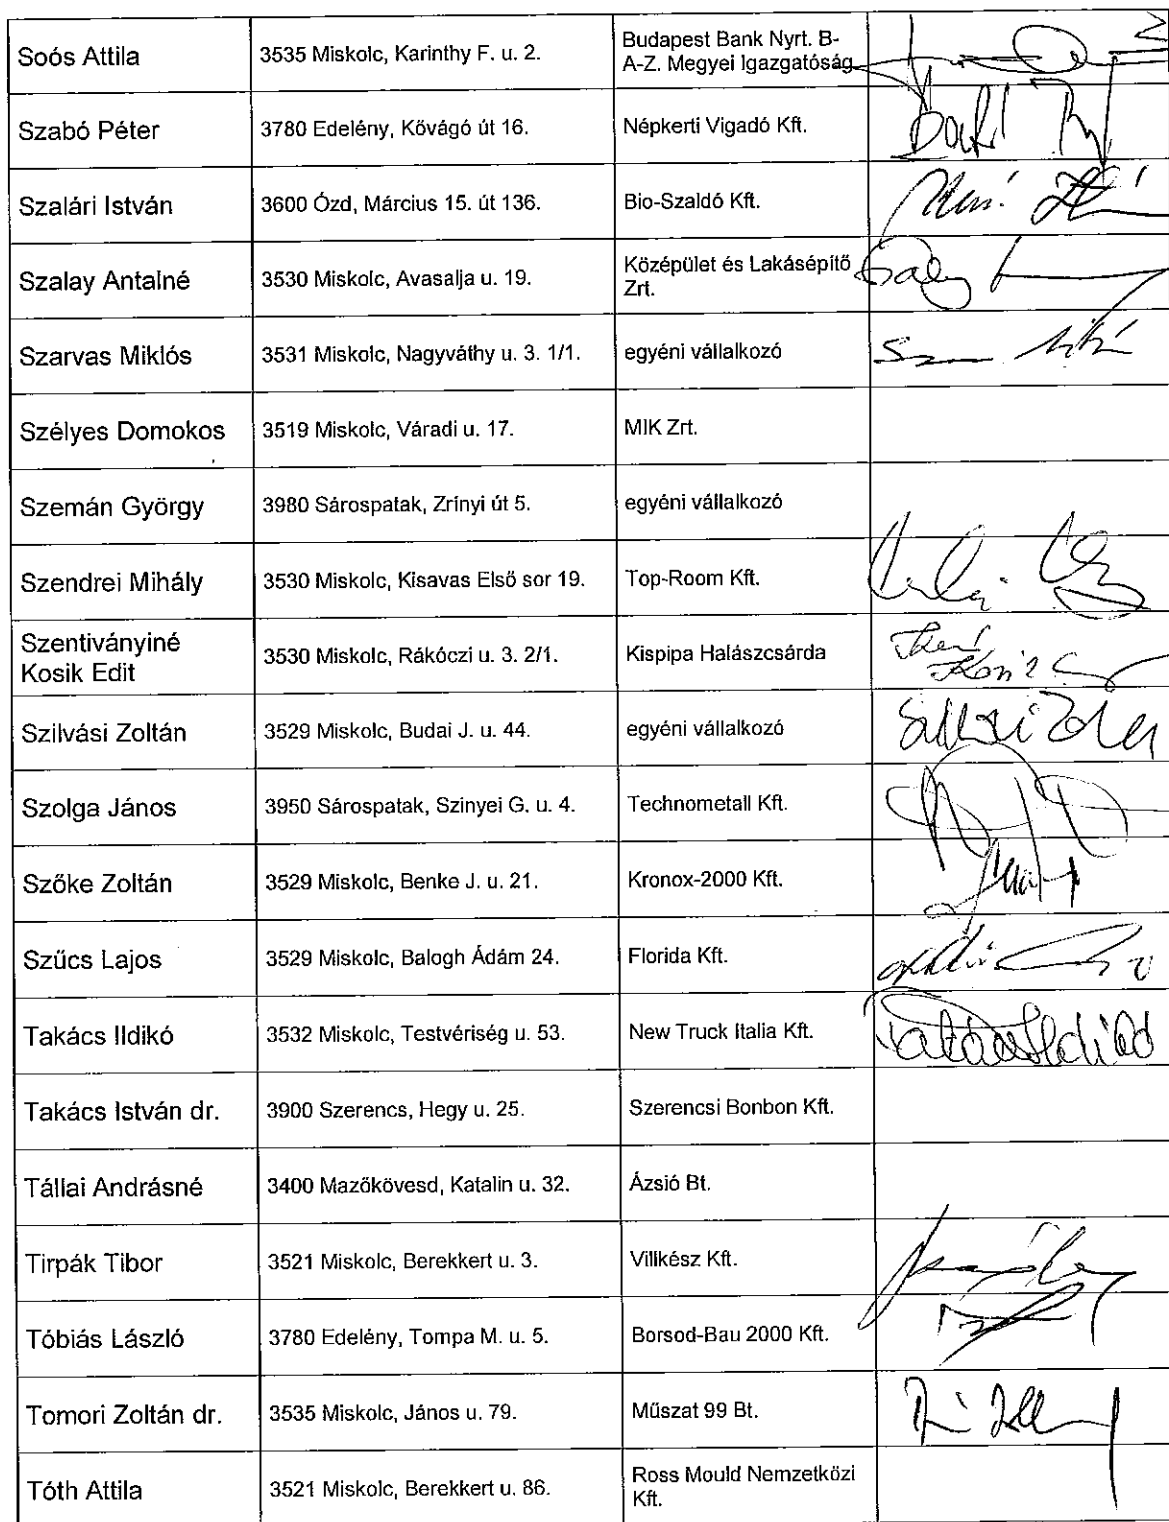 Soós Attila
3535 Miskolc, Karinthy F. u. 2.
Budapest Bank Nyrt. B-
A-Z. Megyei Igazgatóság
Szabó Péter
3780 Edelény, Kővágó út 16.
Népkerti Vigadó Kft.
Szalári István
3600 Ózd, Március 15. út 136.
Bio-Szaldó Kft.
Szalay Antalné
3530 Miskolc, Avasalja u. 19.
Középület és Lakásépítő
Zrt.
Szarvas Miklós
3531 Miskolc, Nagyváthy u. 3. 1/1.
egyéni vállalkozó
Szélyes Domokos
3519 Miskolc, Váradi u. 17.
MIK Zrt.
Szemán György
3980 Sárospatak, Zrínyi út 5.
egyéni vállalkozó
Szendrei Mihály
3530 Miskolc, Kisavas Első sor 19.
Top-Room Kft.
Szentiványiné
Kosik Edit
3530 Miskolc, Rákóczi u. 3. 2/1.
Kispipa Halászcsárda
Szilvási Zoltán
3529 Miskolc, Budai J. u. 44.
egyéni vállalkozó
Szolga János
3950 Sárospatak, Szinyei G. u. 4.
Technometall Kft.
Szőke Zoltán
3529 Miskolc, Benke J. u. 21.
Kronox-2000 Kft.
Szűcs Lajos
3529 Miskolc, Balogh Ádám 24.
Florida Kft.
Takács Ildikó
3532 Miskolc, Testvériség u. 53.
New Truck Italia Kft.
Takács Ildikó
Takács István dr.
3900 Szerencs, Hegy u. 25.
Szerencsi Bonbon Kft.
Tállai Andrásné
3400 Mazőkövesd, Katalin u. 32.
Ázsió Bt.
Tirpák Tibor
3521 Miskolc, Berekkert u. 3.
Villkész Kft.
Tóbiás László
3780 Edelény, Tompa M. u. 5.
Borsod-Bau 2000 Kft.
Tomori Zoltán dr.
3535 Miskolc, János u. 79.
Műszat 99 Bt.
Tóth Attila
3521 Miskolc, Berekkert u. 86.
Ross Mould Nemzetközi
Kft.